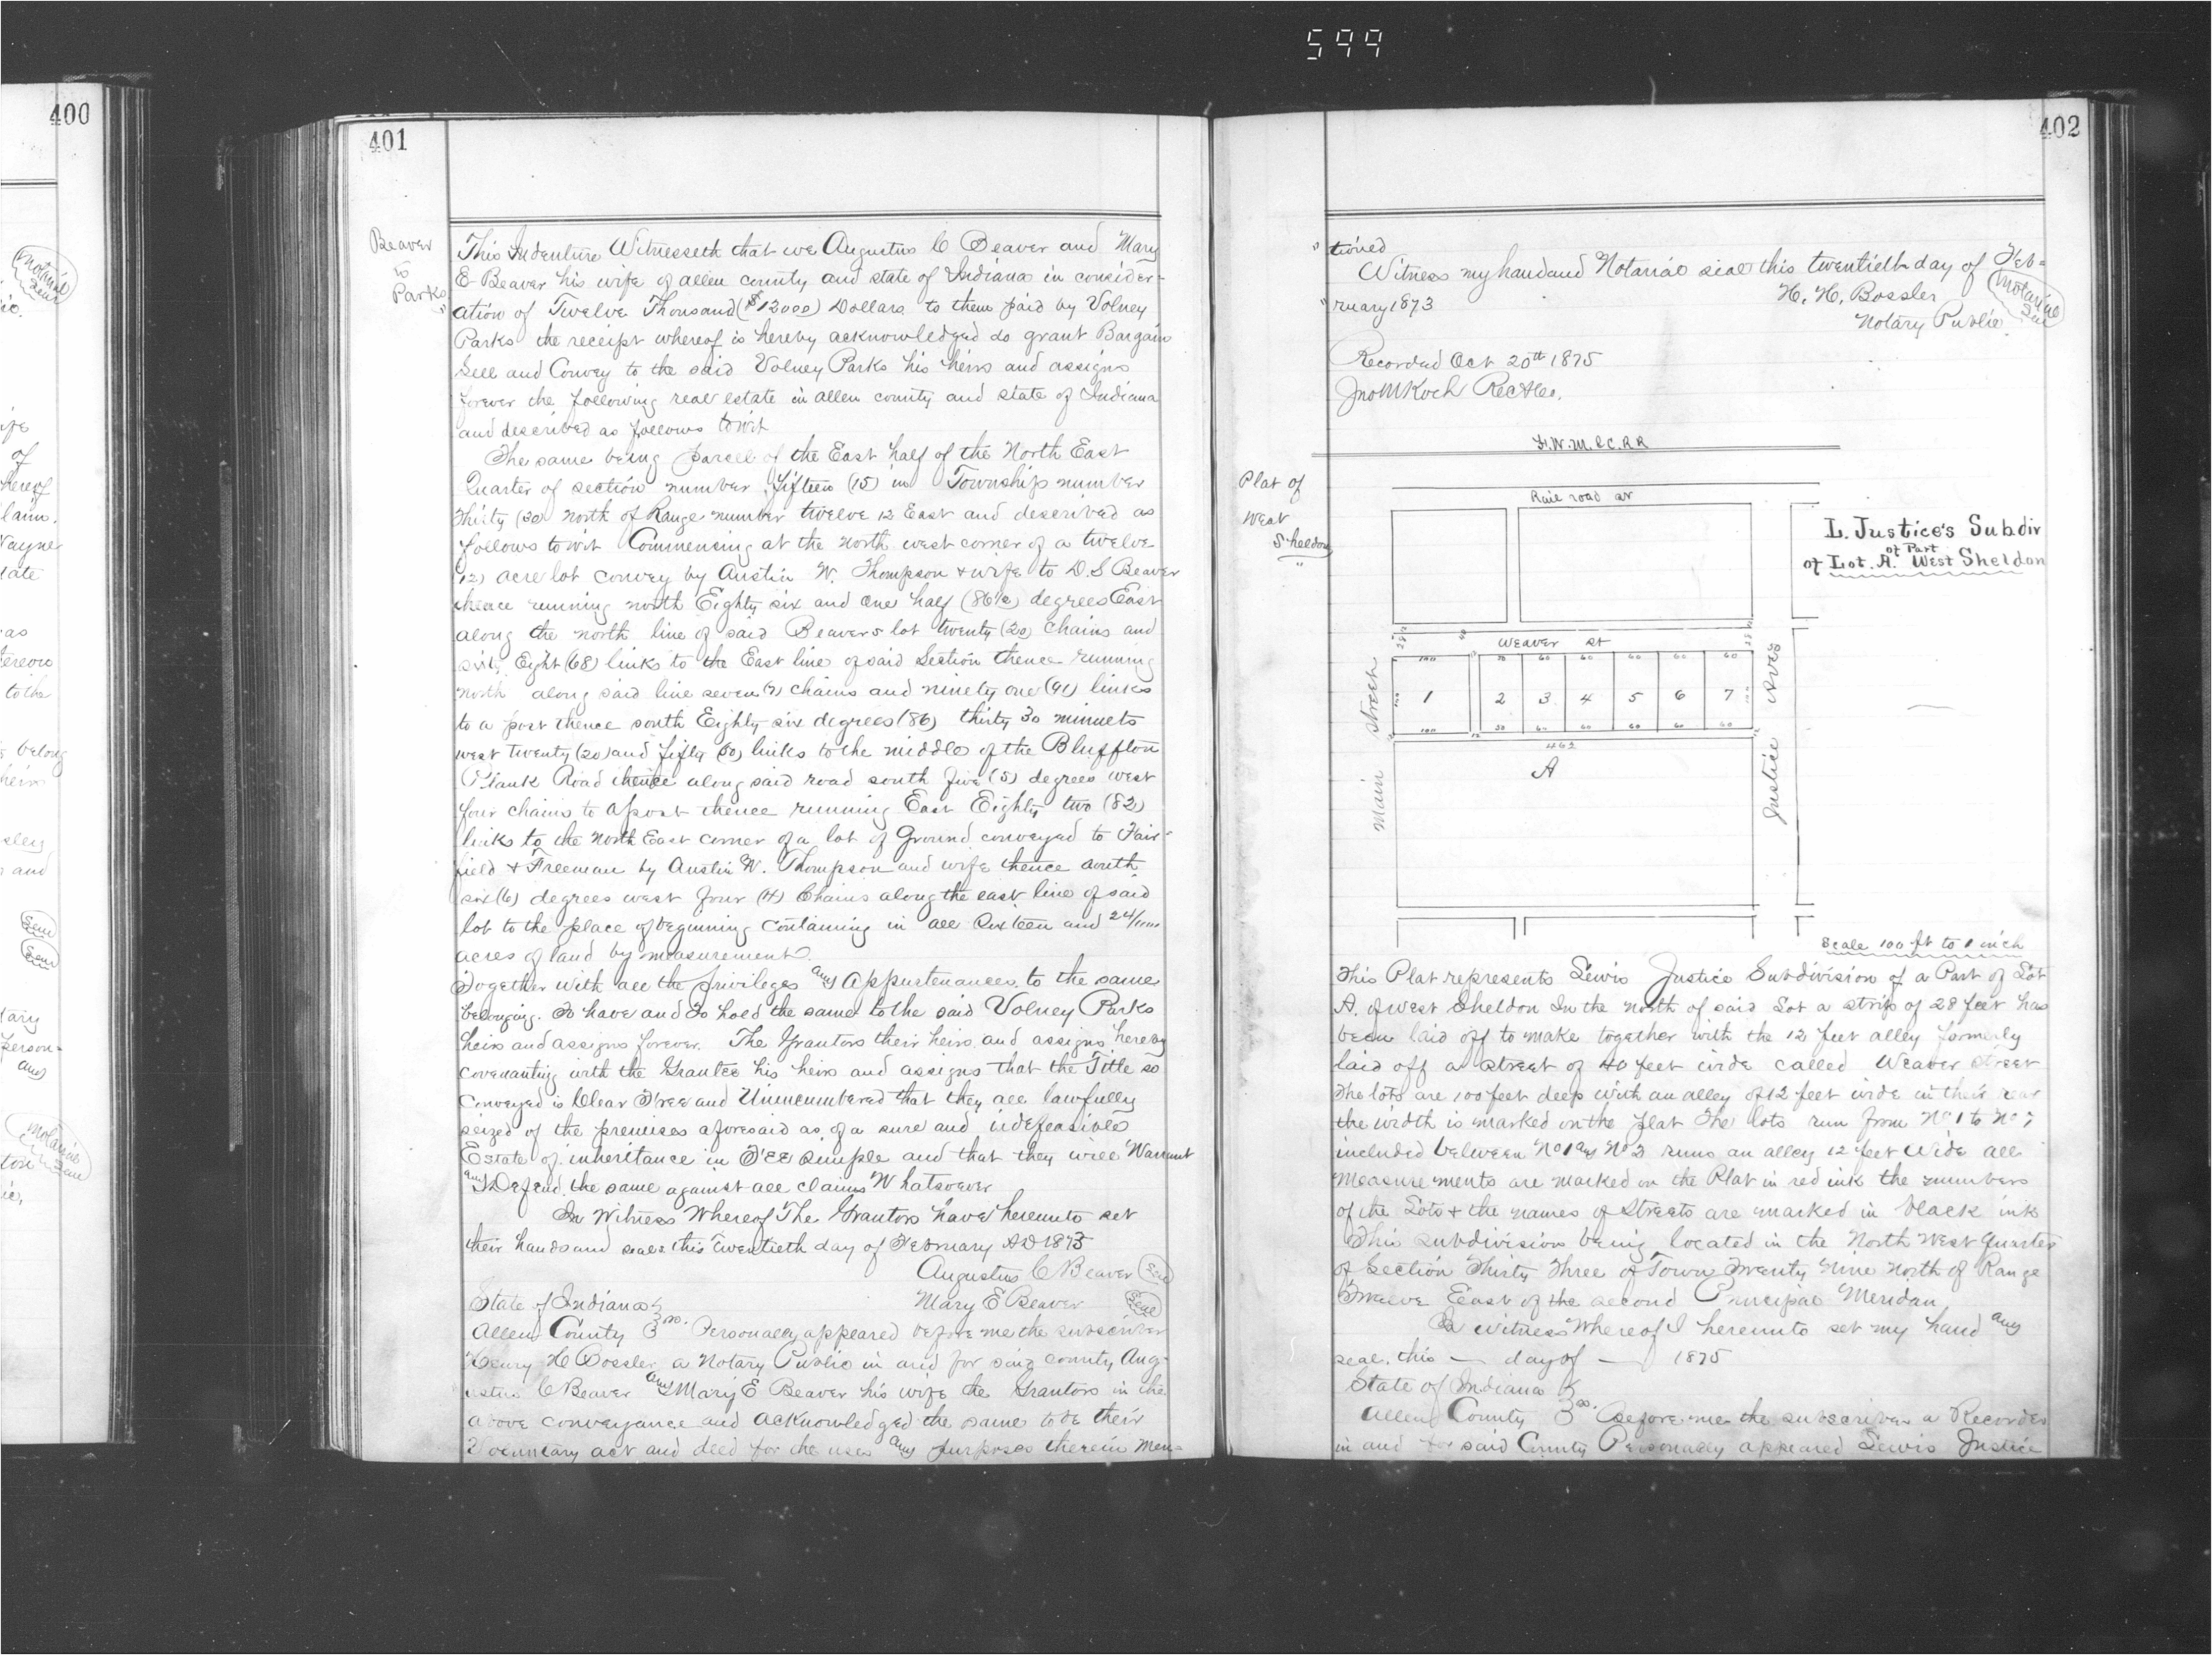 599
400
Notarial
Seal
ife
of
hereof
laim.
Wayne
tate
as
tereon
to the
belong
heirs
and
Seal
Seal
tary
person=
and
Notarial
Seal
ton
401
Beaver
to
Parks
This Indenture Witnesseth that we Augustus C Beaver and Mary
E Beaver his wife of allen county and state of Indiana in consider=
ation of Twelve Thousand ($12000) Dollars to them paid by Volney
Parks the receipt whereof is hereby acknowledged do grant Bargain
Sell and Convey to the said Volney Parks his heirs and assigns
forever the following real estate in allen county and state of Indiana
and described as follows towit
The same being parcel of the East half of the North East
Quarter of section number fifteen (15) in Township number
Thirty (30) north of Range number twelve 12 East and described as
follows towit Commencing at the north west corner of a twelve
(12) acre lot convey by Austin W. Thompson + wife to D. S Beaver
thence running north Eighty six and one half (86½) degrees East
along the north line of said Beavers lot twenty (20) chains and
sixty Eight (68) links to the East line of said Section thence running
north along said line seven (7) chains and ninety one (91) links
to a post thence south Eighty six degrees (86) thirty 30 minuets
west twenty (20) and fifty (50) links to the middle of the Bluffton
Plank Road thence along said road south five (5) degrees west
four chains to a post thence running East Eighty two (82)
links to the North East corner of a lot of Ground conveyed to Fair=
field + Freeman by Austin W. Thompson and wife thence south
six (6) degrees west four (4) Chains along the east line of said
lot to the place of beginning containing in all Sixteen and 24/100
acres of land by measurement.
Together with all the privileges and appurtenances to the same
belonging. To have and To hold the same to the said Volney Parks
heirs and assigns forever. The Grantors their heirs and assigns hereby
covenanting with the Grantee his heirs and assigns that the Title so
conveyed is Clear Free and Unincumbered that they are lawfully
seized of the premises aforesaid as of a sure and indefeasible
Estate of inheritance in Fee Simple and that they will Warrant
and Defend the same against all claims Whatsoever
In Witness Whereof The Grantors have hereunto set
their hands and seals this Twentieth day of February AD 1873
Augustus C Beaver Seal
State of Indiana Mary E Beaver Seal
Allen County ss. Personally appeared before me the subscriber
Henry H Bossler a Notary Public in and for said county Aug-
ustus C Beaver and Mary E Beaver his wife the Grantors in the
above conveyance and acknowledged the same to be their
Voluntary act and deed for the uses and purposes therein men=
402
" tioned
Witness my hand and Notarial seal this twentieth day of Feb=
"ruary 1873 H. H. Bossler Notarial
Notary Public Seal
Recorded Oct 20th 1875
Jno M Koch RecACo.
Ft. W. M. & C. R R
Plat of
West
Sheldon
Rail road av
L. Justice's Subdiv
of Part
of Lot. A. West Sheldon
Weaver St
100 50 60 60 60 60 60
1 2 3 4 5 6 7
100 12 50 60 60 60 60 60
462
A
Main Street
Justice Aves
Scale 100 ft to 1 inch
This Plat represents Lewis Justice Subdivision of a Part of Lot
A. of West Sheldon In the north of said Lot a strip of 28 feet has
been laid off to make together with the 12 feet alley formerly
laid off a street of 40 feet wide called Weaver Street
The lots are 100 feet deep with an alley of 12 feet wide in their rear
the width is marked on the plat The lots run from No 1 to No 7
included between No 1 and No 2 runs an alley 12 feet Wide all
measurements are marked on the Plat in red ink the numbers
of the Lots + the names of Streets are marked in black ink
This subdivision being located in the North West Quarter
of Section Thirty Three of Town Twenty Nine north of Range
Twelve East of the second Principal Meridan
In witness Whereof I hereunto set my hand and
seal. this — day of — 1875
State of Indiana
Allen County ss. Before me the subscriber a Recorder
in and for said County Personally appeared Lewis Justice